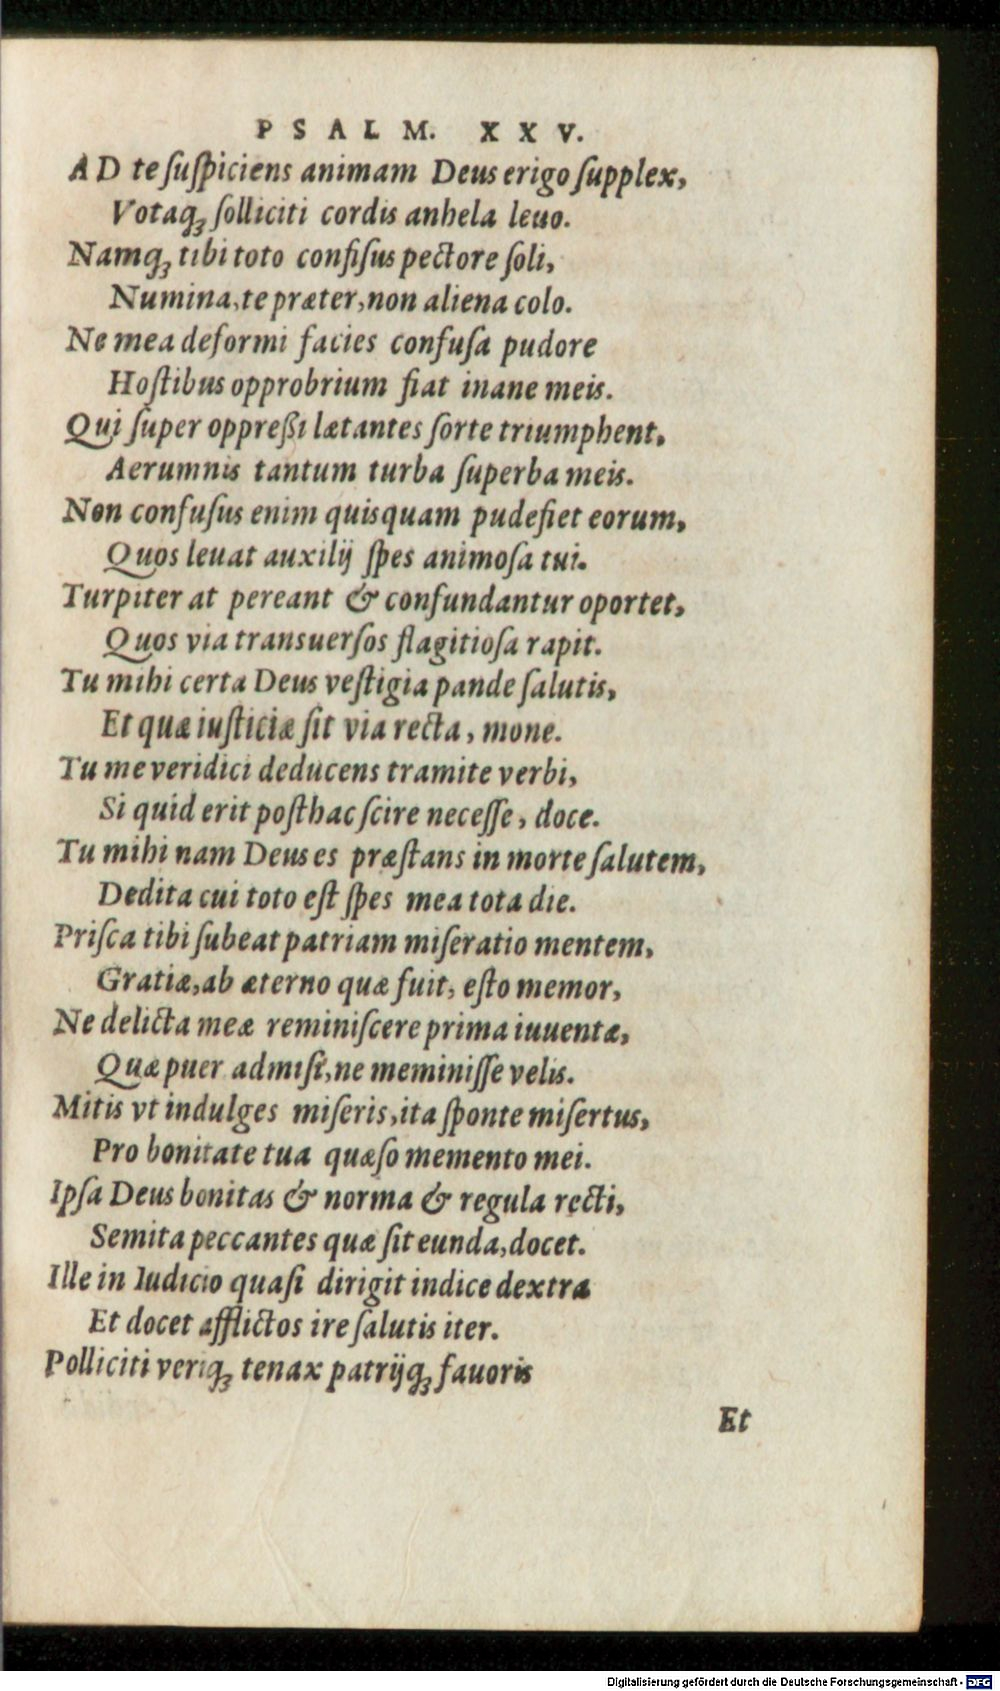 PSALM. XXV.
AD te ſuſpiciens animam Deus erigo ſupplex,
Votaq́ꝫ ſolliciti cordis anhela leuo.
Namq́ꝫ tibi toto confiſus pectore ſoli,
Numina, te præter, non aliena colo.
Ne mea deformi facies confuſa pudore
Hoſtibus opprobrium fiat inane meis.
Qui ſuper oppreßi lætantes ſorte triumphent,
Aerumnis tantum turba ſuperba meis.
Non confuſus enim quisquam pudefiet eorum,
Quos leuat auxilij ſpes animoſa tui.
Turpiter at pereant & confundantur oportet,
Quos via transuerſos flagitioſa rapit.
Tu mihi certa Deus veſtigia pande ſalutis,
Et quæ iuſticiæ ſit via recta, mone.
Tu me veridici deducens tramite verbi,
Si quid erit poſthac ſcire neceſſe, doce.
Tu mihi nam Deus es præſtans in morte ſalutem,
Dedita cui toto eſt ſpes mea tota die.
Priſca tibi ſubeat patriam miſeratio mentem,
Gratiæ, ab æterno quæ fuit, eſto memor,
Ne delicta meæ reminiſcere prima iuuentæ,
Quæ puer admiſi, ne meminiſſe velis.
Mitis vt indulges miſeris, ita ſponte miſertus,
Pro bonitate tua quæſo memento mei.
Ipſa Deus bonitas & norma & regula recti,
Semita peccantes quæ ſit eunda, docet.
Ille in Iudicio quaſi dirigit indice dextra
Et docet afflictos ire ſalutis iter.
Polliciti veriq́ꝫ tenax patrijq́ꝫ fauoris
Et
Digitalisierung gefördert durch die Deutsche Forschungsgemeinschaft - DFG